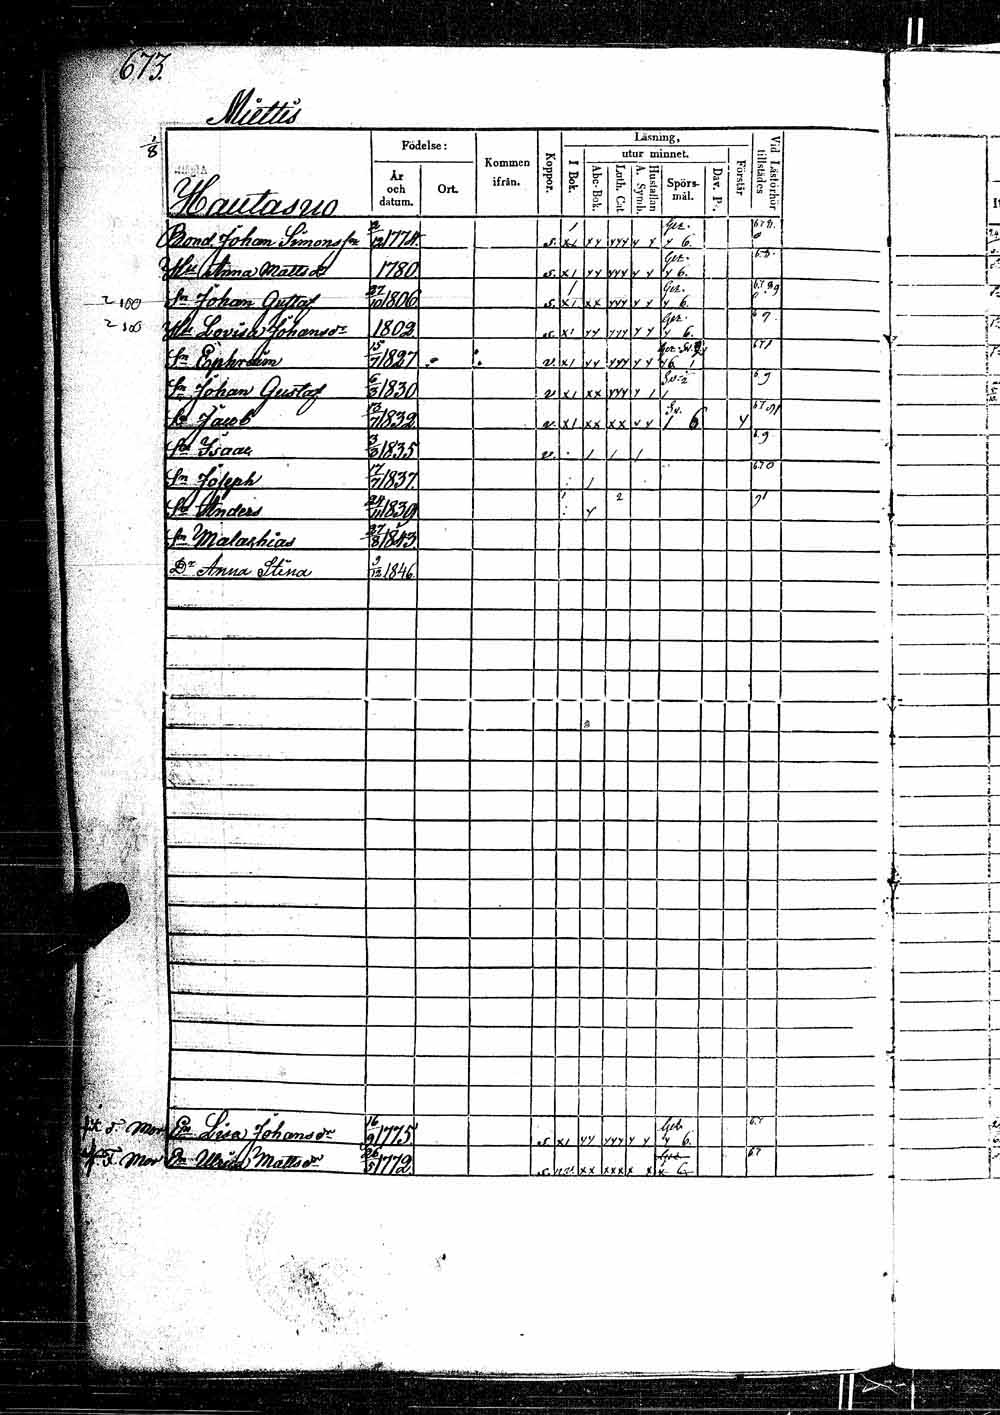 673.
Miettis
1/8
Födelse:
Läsning,
utur minnet.
År och datum.
Ort.
Kommen ifrån.
Koppor.
I Bok.
Abc-Bok.
Luth. Cat
A. Symb.
Hustaflan
Spörsmål.
Dav. Ps.
Förstår
Vid Läsförhör tillstädes
Hautasuo
Bond Johan Simonsson 1774. s. x1 yy yyy y y Gez. y 6.
Hu Anna Mattsdr 1780 s. x1 yy yyy y y Gez. y 6.
2 100 Sn Johan Gustaf 27/10 1806 s. x1 xx yyy y y Gez. y 6.
2 100 Hu Lovisa Johansdr 1802 s. x1 yy yyy y y Gez. y 6. 6 7.
Sn Ephraim 15/7 1827 v. x1 yy yyy y y
Sn Johan Gustaf 6/3 1830 v x1 xx yyy y 1 6 9
Sn Jacob 13/7 1832 v. x1 xx xx y y 1 6 y
Sn Isaac 3/3 1835 v. 1 1 1 6 9
Sn Joseph 17/7 1837. 1 670
Sn Anders 24/11 1839 y 2
Sn Malachias 27/8 1843.
Dr Anna Stina 9/12 1846.
F. Mor En Lisa Johansdr 16/9 1775 s. x1 yy yyy y y Geb y 6. 67
F. Mor En Ulrica Mattsdr 26/5 1772. s. xx xxx x x 67